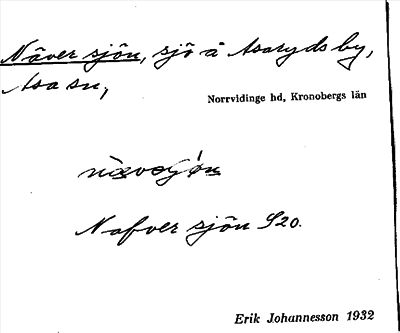 Näver sjön, sjö å Asaryds by,
Asa sn,
Norrvidinge hd, Kronobergs län
Nafver sjön S20.
Erik Johannesson 1932